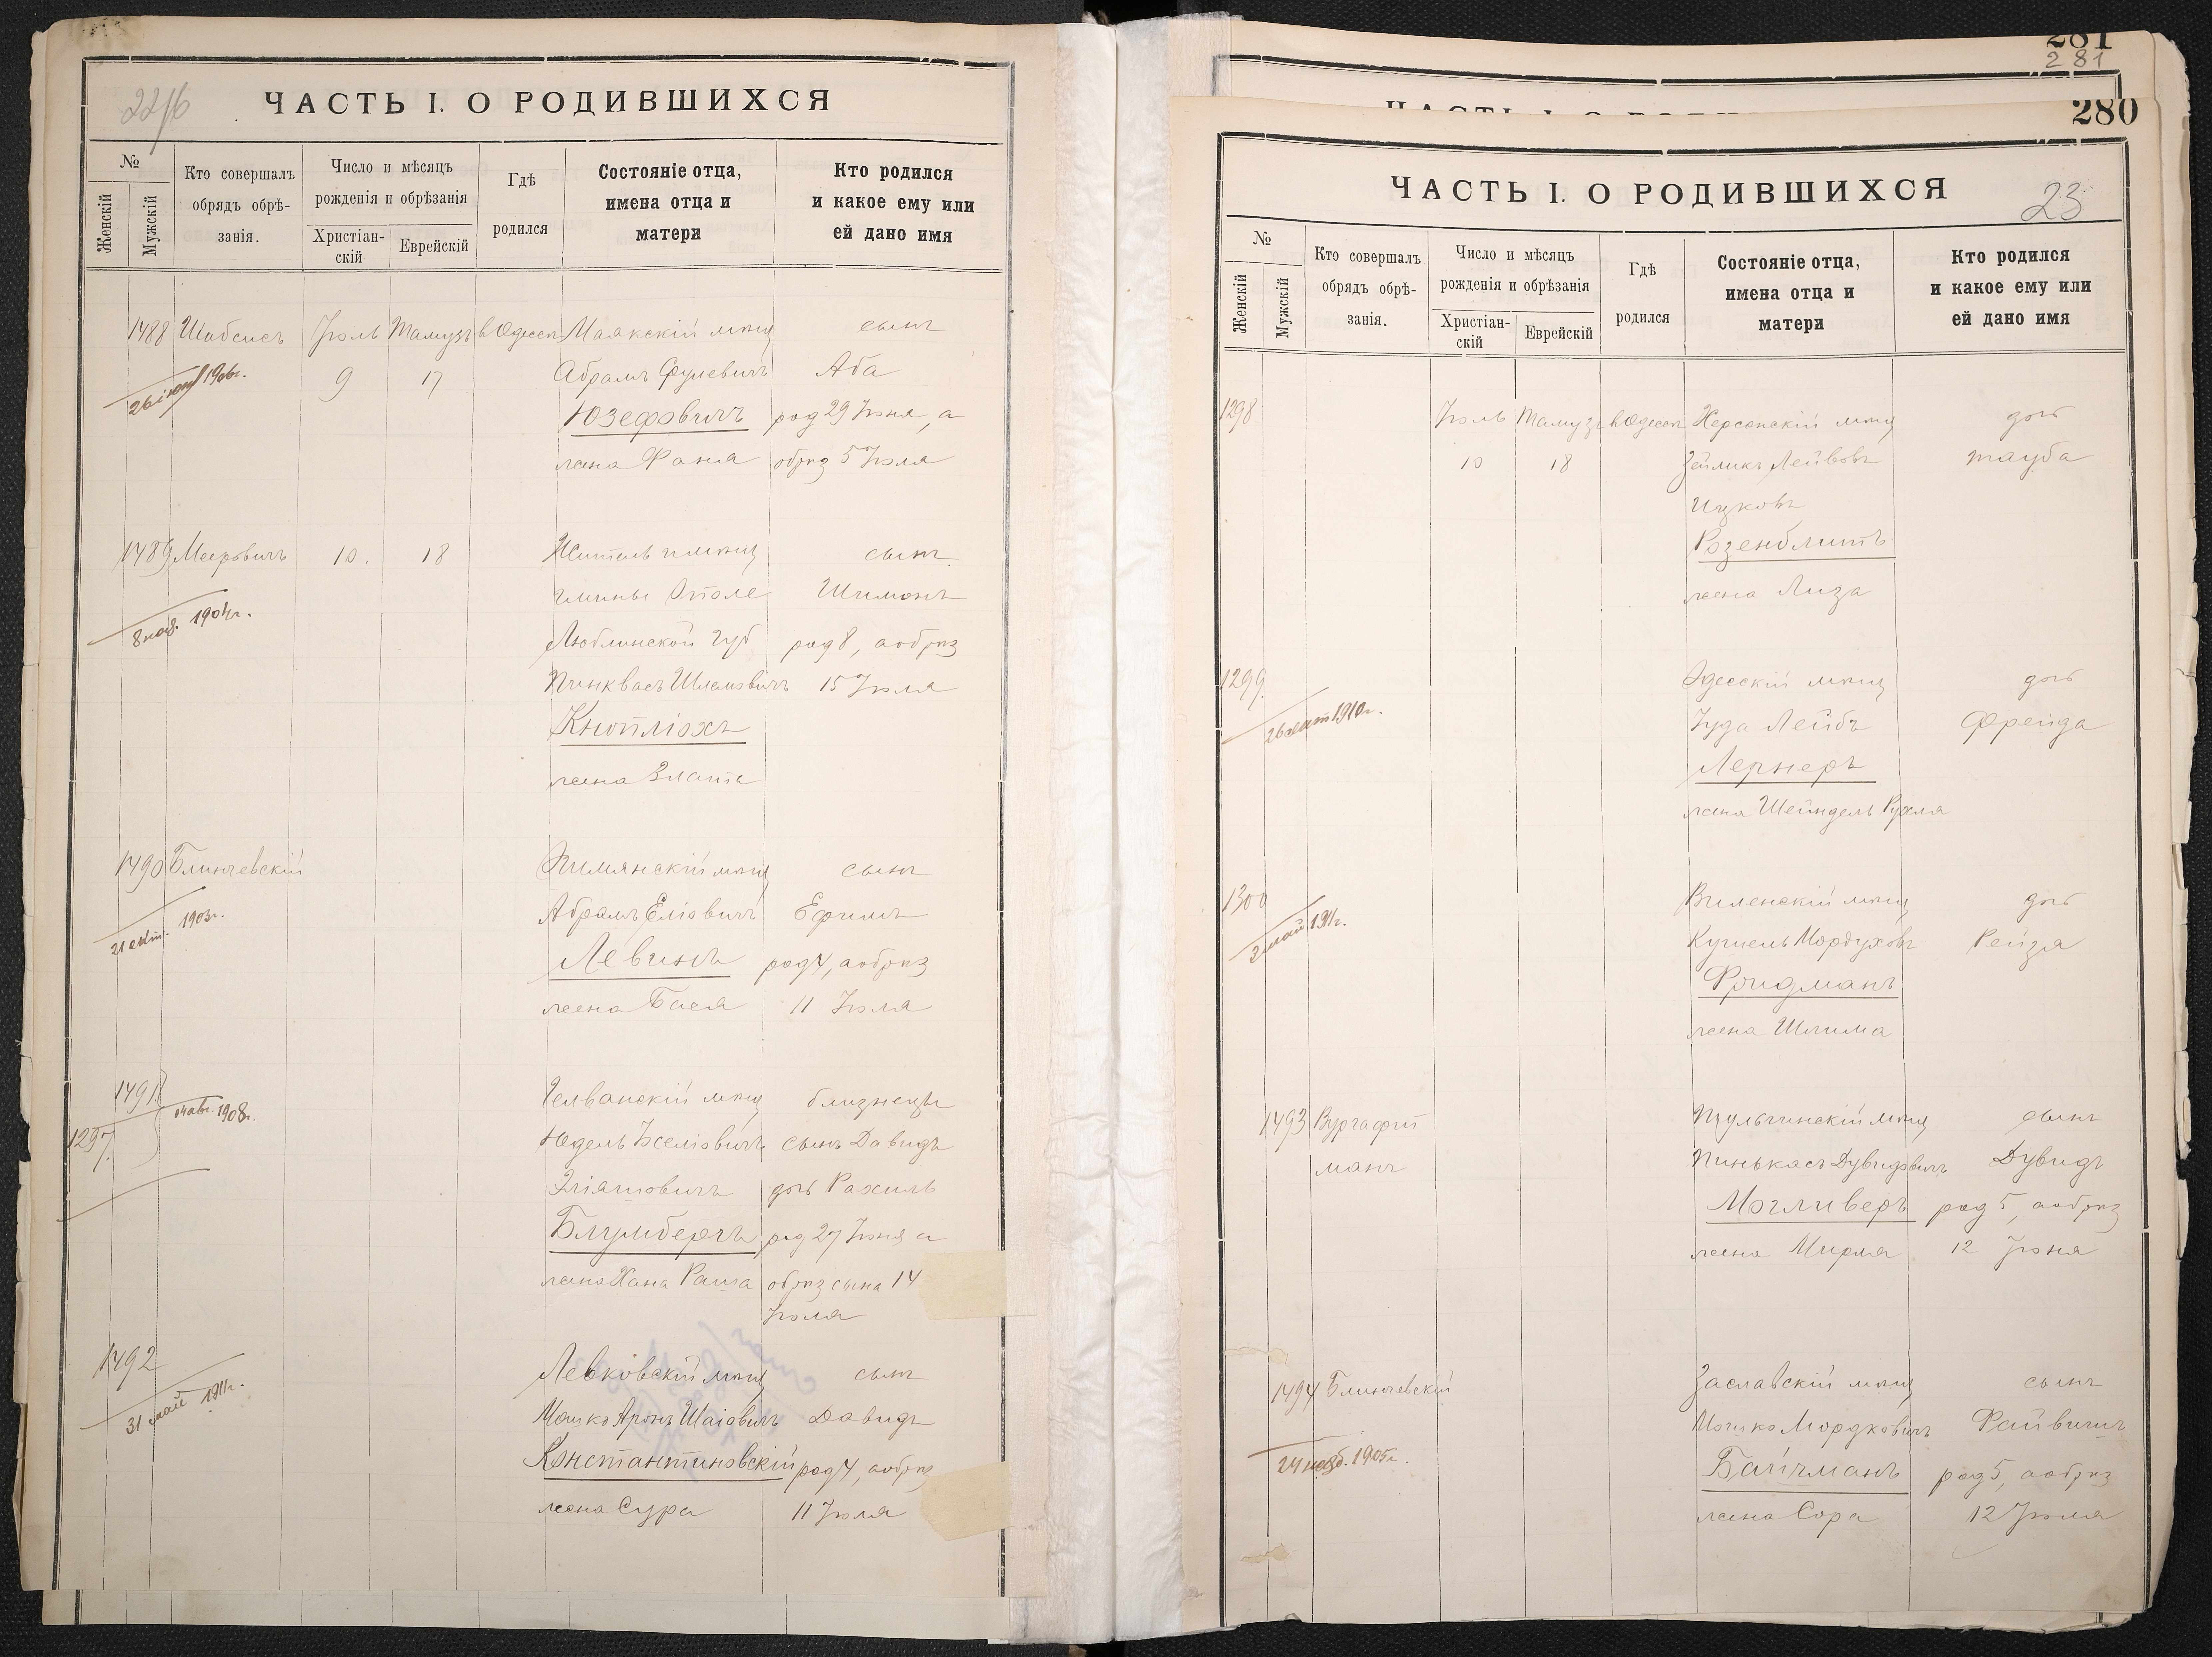 22
ЧАСТЬ I. О РОДИВШИХСЯ
№
Женскій
Мужскій
Кто совершалъ
обрядъ обрѣ-
занія.
Число и мѣсяцъ
рожденія и обрѣзанія
Христіан-
скій
Еврейскій
Гдѣ
родился
Состояніе отца,
имена отца и
матери
Кто родился
и какое ему или
ей дано имя
1488 Шабсисъ Іюль Тамузъ въ Одессѣ Маякскій мѣщ сынъ
1906г. 9 17 Абрамъ Фулевичъ Аба
Юзефовичъ род 29 Іюня, а
жена Фаня обрѣз 5 Іюля
1489 Мееровичъ 10. 18 Житель сынъ
гмины Ополе Шимонъ
8 нояб. 1904г. Люблинской губ род 8, а обрѣз
Пинквасъ Шлемовичъ 15 Іюля
Кнопліохъ
жена Злата
1490 Блинчевскій мѣщ сынъ
21 окт. 1903г. Абрамъ Еліовичъ Ефимъ
Левинъ род 4, а обрѣз
жена Бася 11 Іюля
1491 мѣщ близнецы
1297. авг. 1908г. сынъ Давидъ
дочь Рахиль
Блумбергъ род 27 Іюня а
жена Хана Раиса обрѣз сына 14
Іюля
1492 Левковскій мѣщ сынъ
31 май 1911г. Мошко Аронъ Шаіовичъ Давидъ
Константиновскій род 4, а обрѣз
жена Сура 11 Іюля
281
281
280
ЧАСТЬ I. О РОДИВШИХСЯ
23
№
Женскій
Мужскій
Кто совершалъ
обрядъ обрѣ-
занія.
Число и мѣсяцъ
рожденія и обрѣзанія
Христіан-
скій
Еврейскій
Гдѣ
родился
Состояніе отца,
имена отца и
матери
Кто родился
и какое ему или
ей дано имя
1298 Іюль Тамузъ въ Одессѣ Херсонскій мѣщ дочь
10 18 Зейликъ Лейбовъ Тауба
Ицковъ
Розенблитъ
жена Лиза
1299 Одесскій мѣщ дочь
1910г. Іуда Лейбъ Фрейда
Лернеръ
жена Шейндель Рухля
1300 Виленскій мѣщ дочь
май 1911г. Мордуховъ Рейзя
Фридманъ
жена Шлима
1493 Вургафт Тульчинскій мѣщ сынъ
манъ Пинькасъ Дувидовичъ Дувидъ
Могливеръ род 5, а обрѣз
жена Мирля 12 Іюня
1494 Блинчевскій Заславскій мѣщ сынъ
Мошко Мордковичъ Файвишъ
24 нояб. 1905г. Байчманъ род 5, а обрѣз
жена Сора 12 Іюля